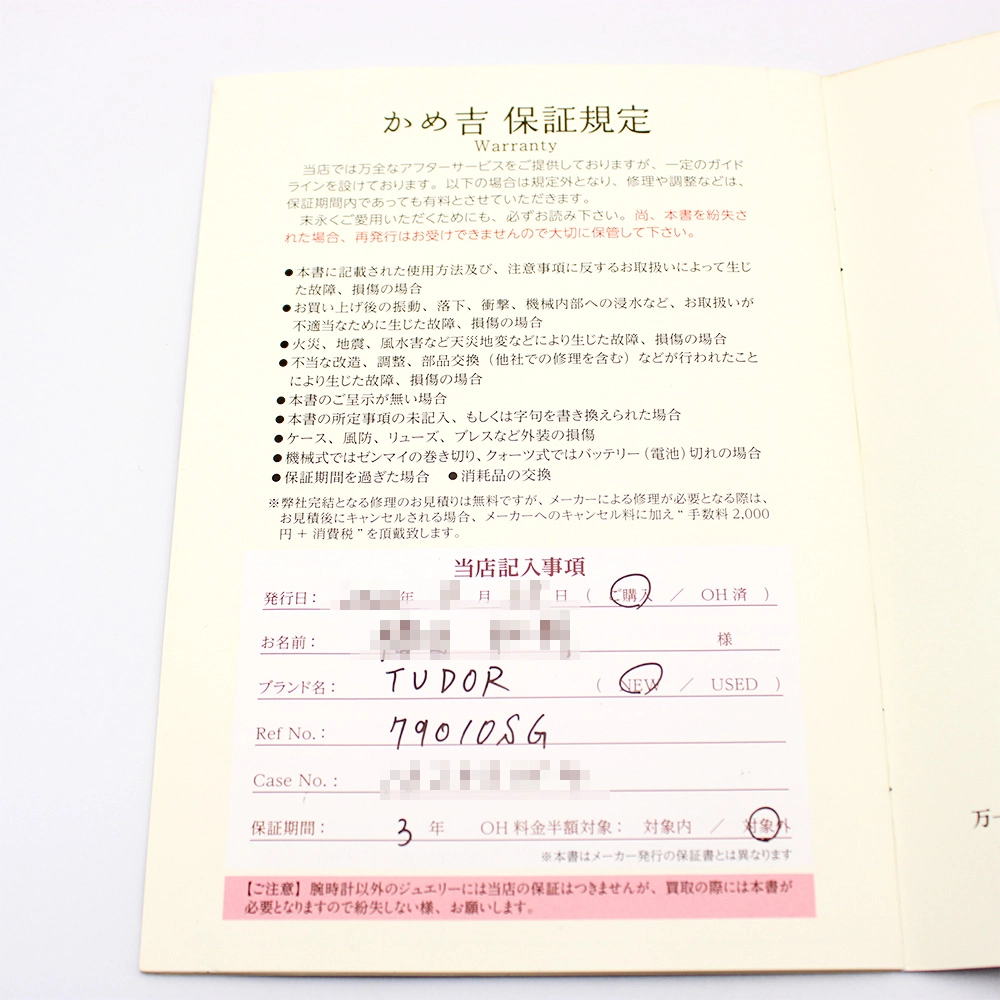 かめ吉 保証規定
Warranty
当店では万全なアフターサービスをご提供しておりますが、一定のガイド
ラインを設けております。以下の場合は規定外となり、修理や調整などは、
保証期間内であっても有料とさせていただきます。
末永くご愛用いただくためにも、必ずお読み下さい。尚、本書を紛失さ
れた場合、再発行はお受けできませんので大切に保管して下さい。
●本書に記載された使用方法及び、注意事項に反するお取扱いによって生じ
た故障、損傷の場合
●お買い上げ後の振動、落下、衝撃、機械内部への浸水など、お取扱いが
不適当なために生じた故障、損傷の場合
●火災、地震、風水害など天災地変などにより生じた故障、損傷の場合
●不当な改造、調整、部品交換（他社での修理を含む）などが行われたこと
により生じた故障、損傷の場合
●本書のご呈示が無い場合
●本書の所定事項の未記入、もしくは字句を書き換えられた場合
●ケース、風防、リューズ、ブレスなど外装の損傷
●機械式ではゼンマイの巻き切り、クォーツ式ではバッテリー（電池）切れの場合
●保証期間を過ぎた場合 ●消耗品の交換
※弊社完結となる修理のお見積りは無料ですが、メーカーによる修理が必要となる際は、
お見積後にキャンセルされる場合、メーカーへのキャンセル料に加え“手数料2,000
円＋消費税”を頂戴致します。
当店記入事項
発行日： 年 月 日 （ ご購入 ／ OH済 ）
お名前： 様
ブランド名： TUDOR （ NEW ／ USED ）
Ref No.： 79010SG
Case No.：
保証期間： 3 年 OH料金半額対象： 対象内 ／ 対象外
※本書はメーカー発行の保証書とは異なります
【ご注意】腕時計以外のジュエリーには当店の保証はつきませんが、買取の際には本書が
必要となりますので紛失しない様、お願いします。
万一